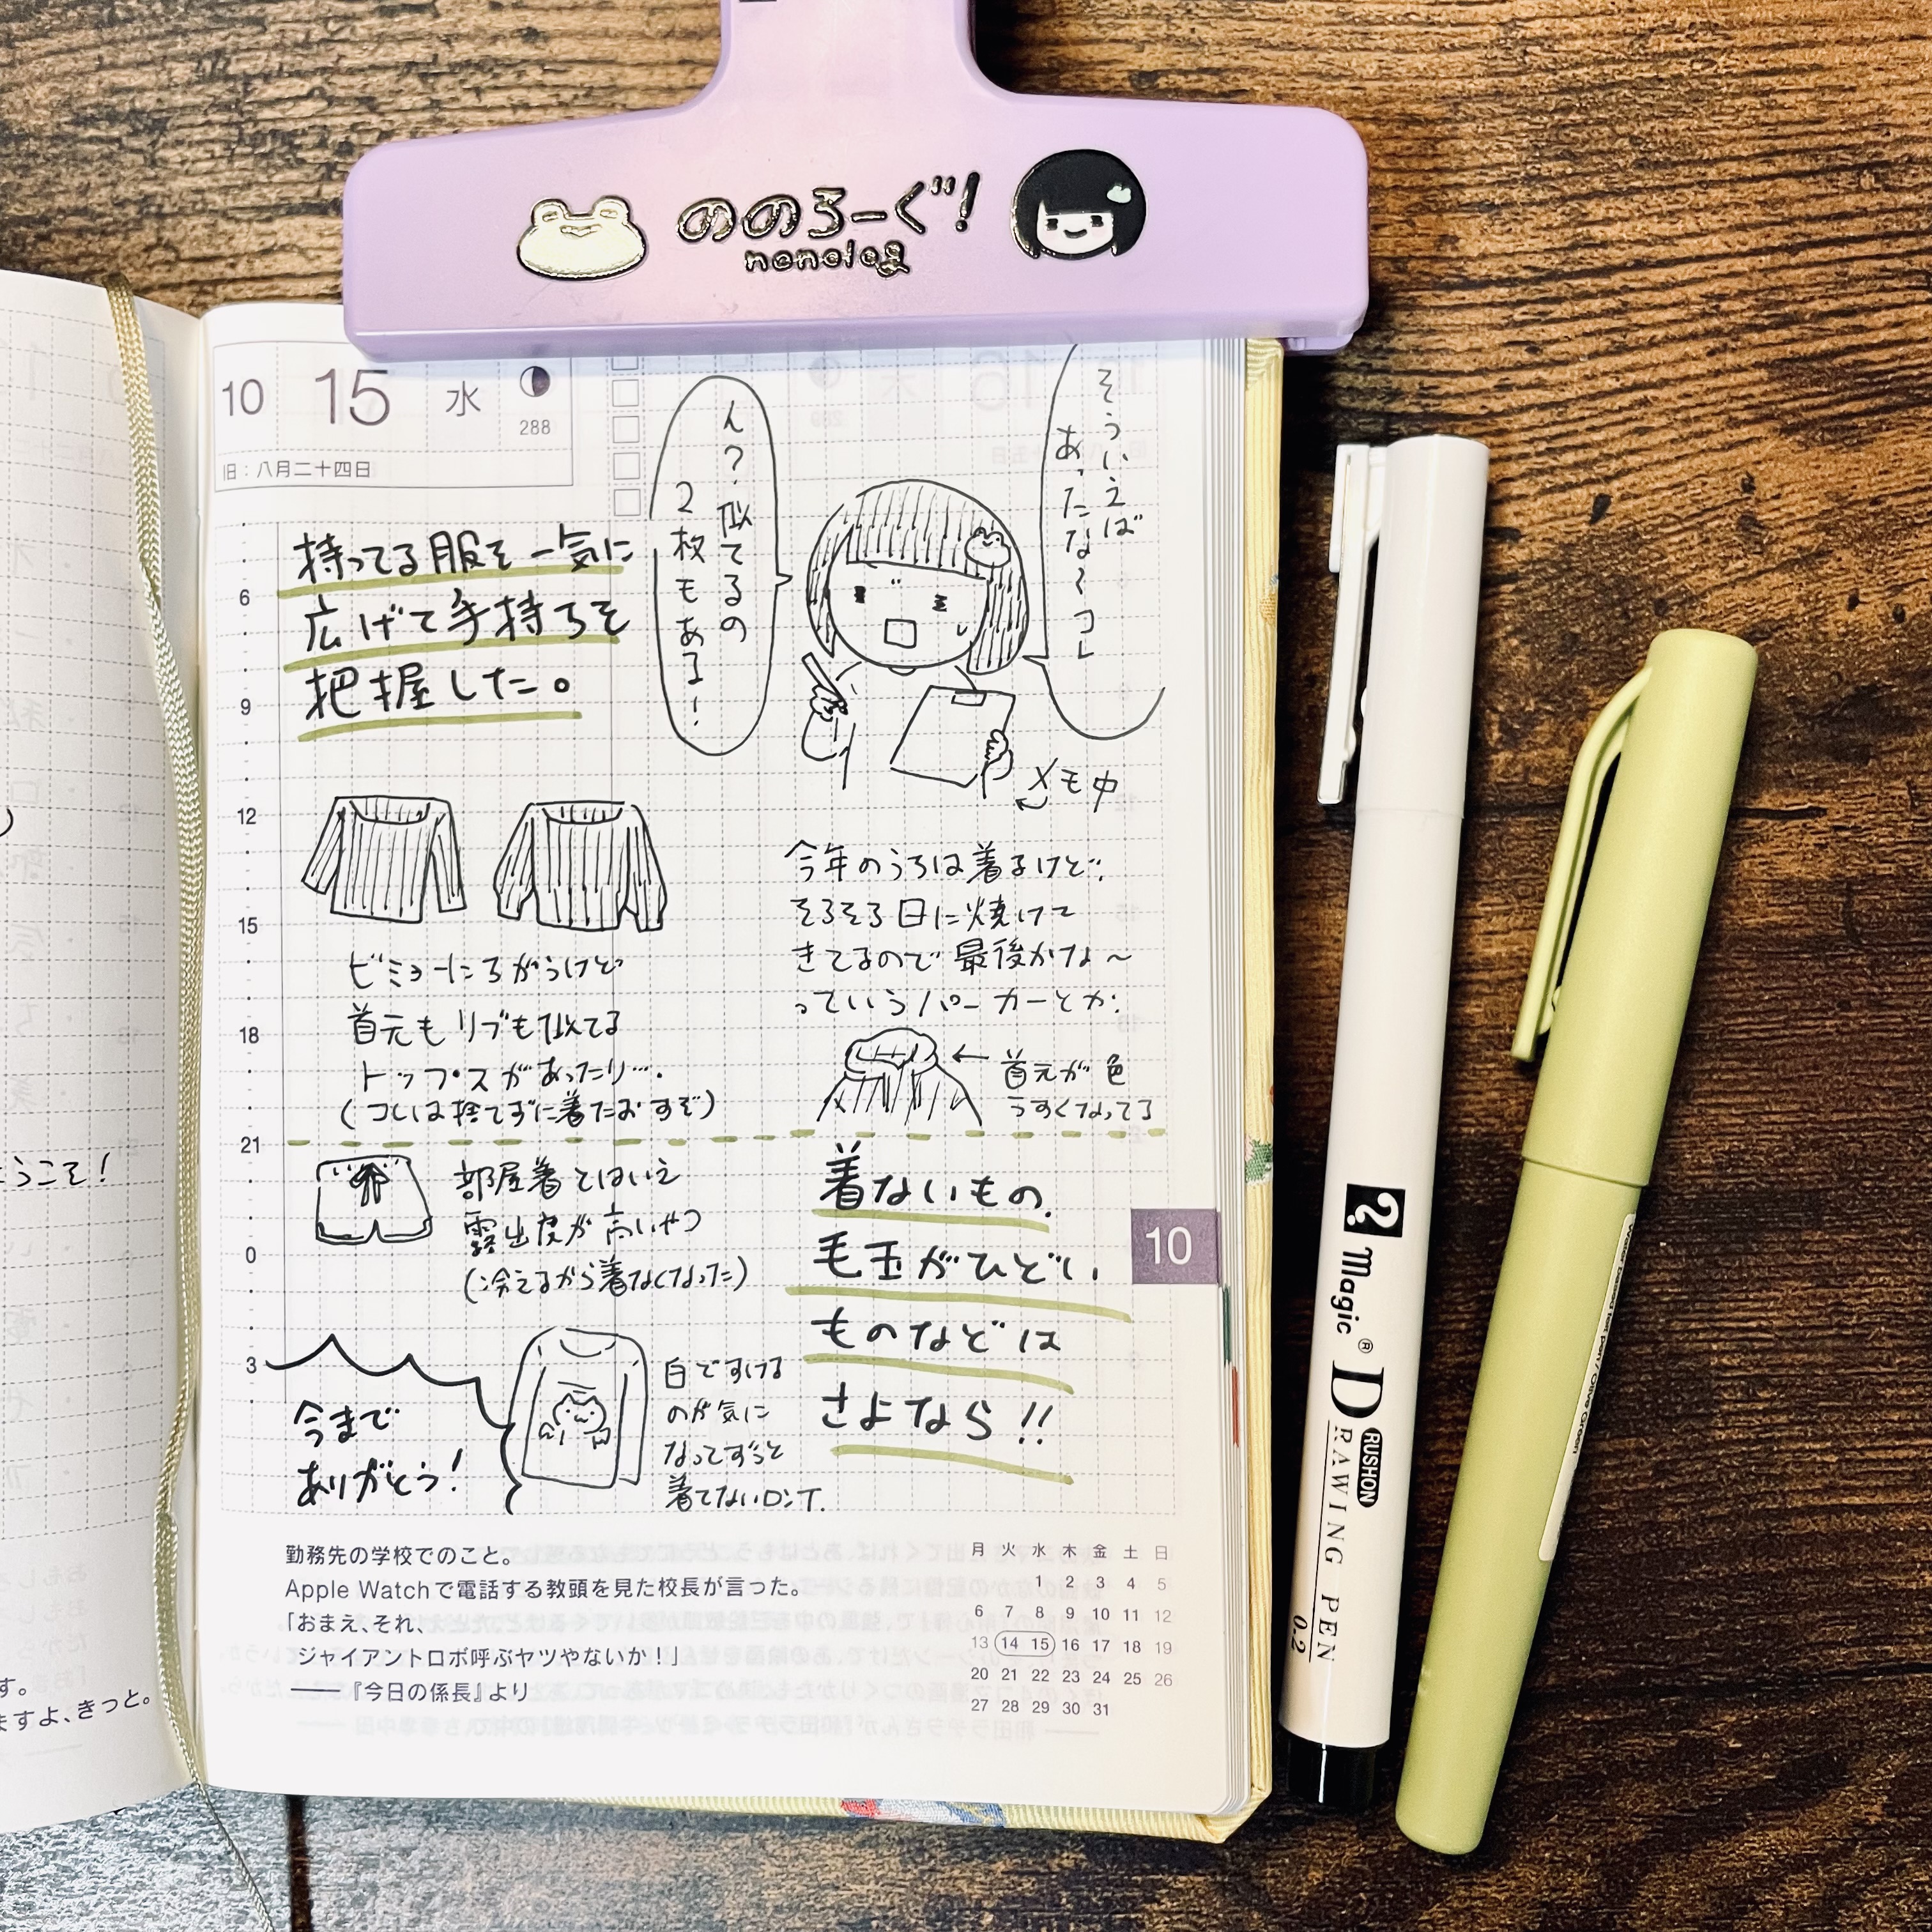 ののろーぐ!
nonolog
10 15 水
288
旧：八月二十四日
持ってる服を一気に
広げて手持ちを
把握した。
ん？似てるの
2枚もある！
そういえば
あったな〜コレ
メモ中
6
9
12
15
18
21
0
3
ビミョーにちがうけど
首元もリブも似てる
トップスがあったり…。
(コレは捨てずに着たおすぞ)
今年のうちは着るけど、
そろそろ日に焼けて
きてるので最後かな〜
っていうパーカーとか。
首元が色
うすくなってる
部屋着とはいえ
露出度が高いやつ
(冷えるから着なくなった)
今まで
ありがとう!
白ですける
のが気に
なってずっと
着てないロンT.
着ないもの、
毛玉がひどい
ものなどは
さよなら!!
10
勤務先の学校でのこと。
Apple Watchで電話する教頭を見た校長が言った。
「おまえ、それ、
ジャイアントロボ呼ぶヤツやないか！」
――『今日の係長』より
月 火 水 木 金 土 日
1 2 3 4 5
6 7 8 9 10 11 12
13 14 15 16 17 18 19
20 21 22 23 24 25 26
27 28 29 30 31
うこそ!
す。
ますよ、きっと。
? Magic ® RUSHON
DRAWING PEN 0.2